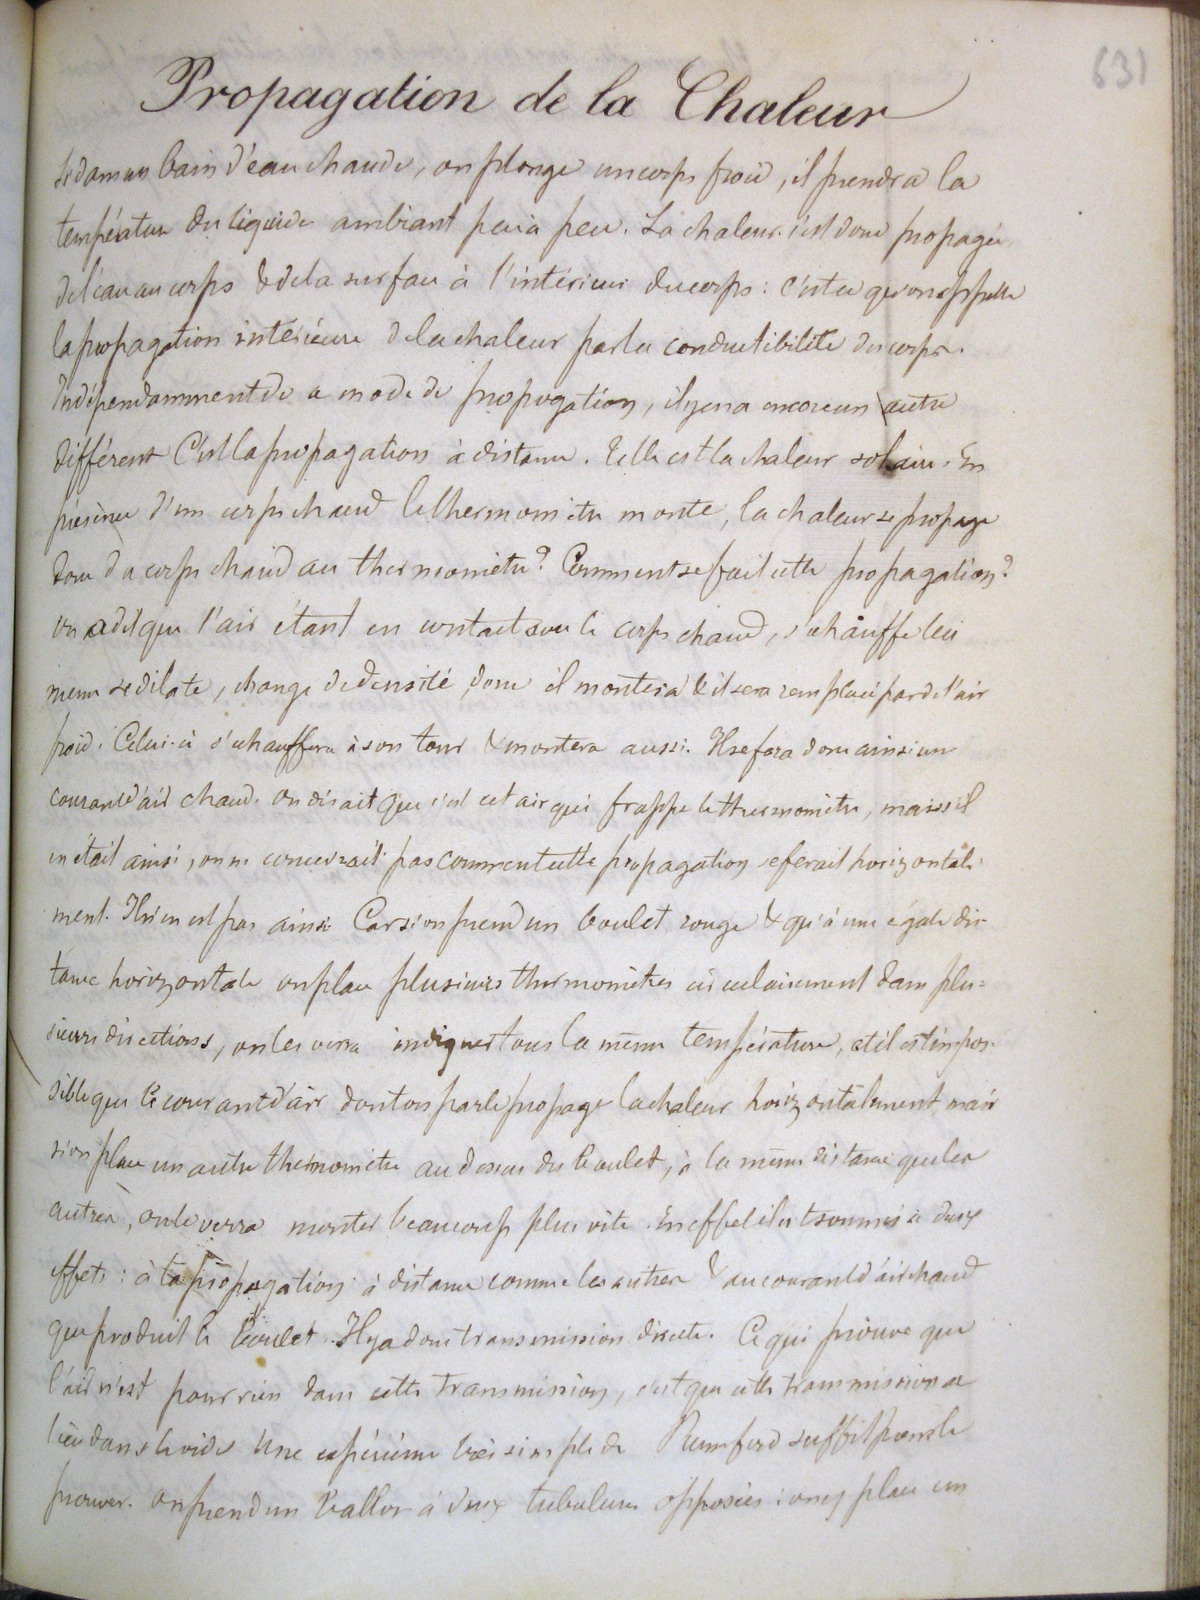 631
Propagation de la Chaleur
Si dans un bain d'eau chaude, on plonge un corps froid, il prendra la
température du liquide ambiant peu à peu. La chaleur s'est donc propagée
de l'eau au corps & de la surface à l'intérieur du corps : c'est ce qu'on appelle
la propagation intérieure de la chaleur par la conductibilité du corps.
Indépendamment de ce mode de propagation, il y en a encore un autre
différent C'est la propagation à distance. Telle est la chaleur solaire. En
présence d'un corps chaud le thermomètre monte, la chaleur se propage
donc du corps chaud au thermomètre? Comment se fait cette propagation?
on a dit que l'air étant en contact avec le corps chaud, s'échauffe lui
même se dilate, change de densité, donc il montera & il sera remplacé par de l'air
froid. Celui-ci s'échauffera à son tour & montera aussi. Il se fera donc ainsi un
courant d'air chaud. On disait que c'est cet air qui frappe le thermomètre, mais s'il
en était ainsi, on ne concevrait pas comment cette propagation se ferait horizontale
ment. Il n'en est pas ainsi Car si on prend un boulet rouge & qu'à une égale dis-
tance horizontale on place plusieurs thermomètres circulairement dans plu-
sieurs directions, on les verra indiquer tous la même température, et il est impos-
sible que le courant d'air dont on parle propage la chaleur horizontalement, mais
si on place un autre thermomètre au dessus du boulet, à la même distance que les
autres, on le verra monter beaucoup plus vite. En effet il est soumis à deux
effets : à la propagation à distance comme les autres & au courant d'air chaud
que produit le boulet. Il y a donc transmission directe. Ce qui prouve que
l'air n'est pour rien dans cette transmission, c'est que cette transmission a
lieu dans le vide Une expérience très simple de Rumford suffit pour le
prouver. On prend un ballon à deux tubulures opposées : on y place un